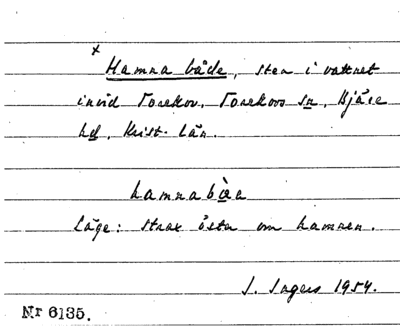 x
Hamna både, sten i vattnet
invid Torekov. Torekovs sn, Bjäre
hd, Krist. län.
hamnabὰa
Läge: strax öster om hamnen.
S. Ingers 1954.
Nr 6135.